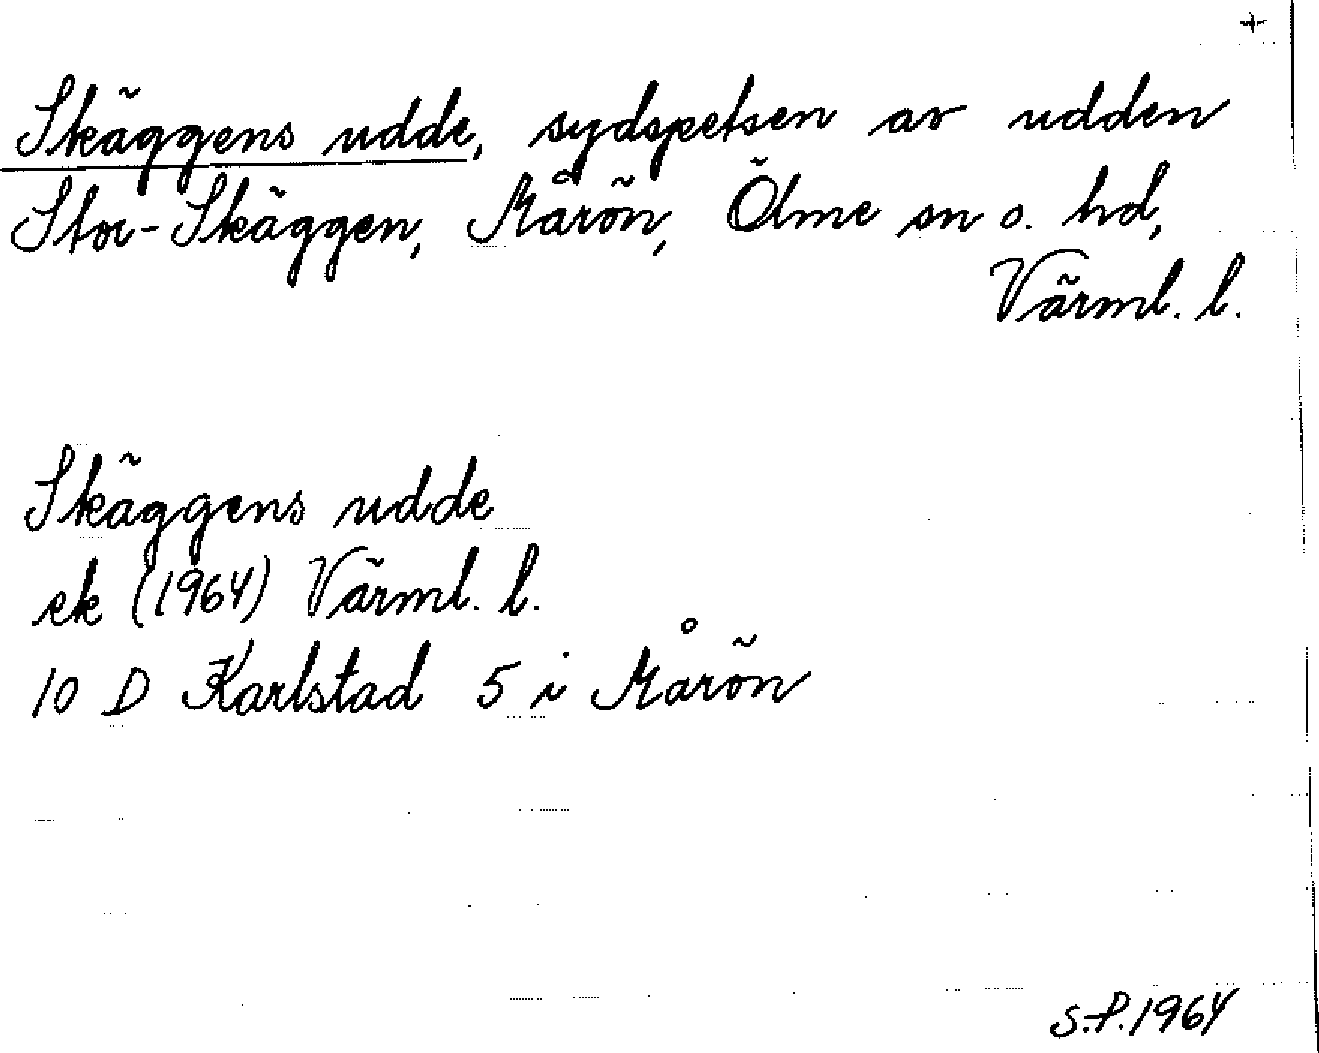 +
Skäggens udde, sydspetsen av udden
Stor-Skäggen, Mårön, Ölme sn o. hd,
Värml. l.
Skäggens udde
ek (1964) Värml. l.
10 D Karlstad 5 i Mårön
S.P. 1964